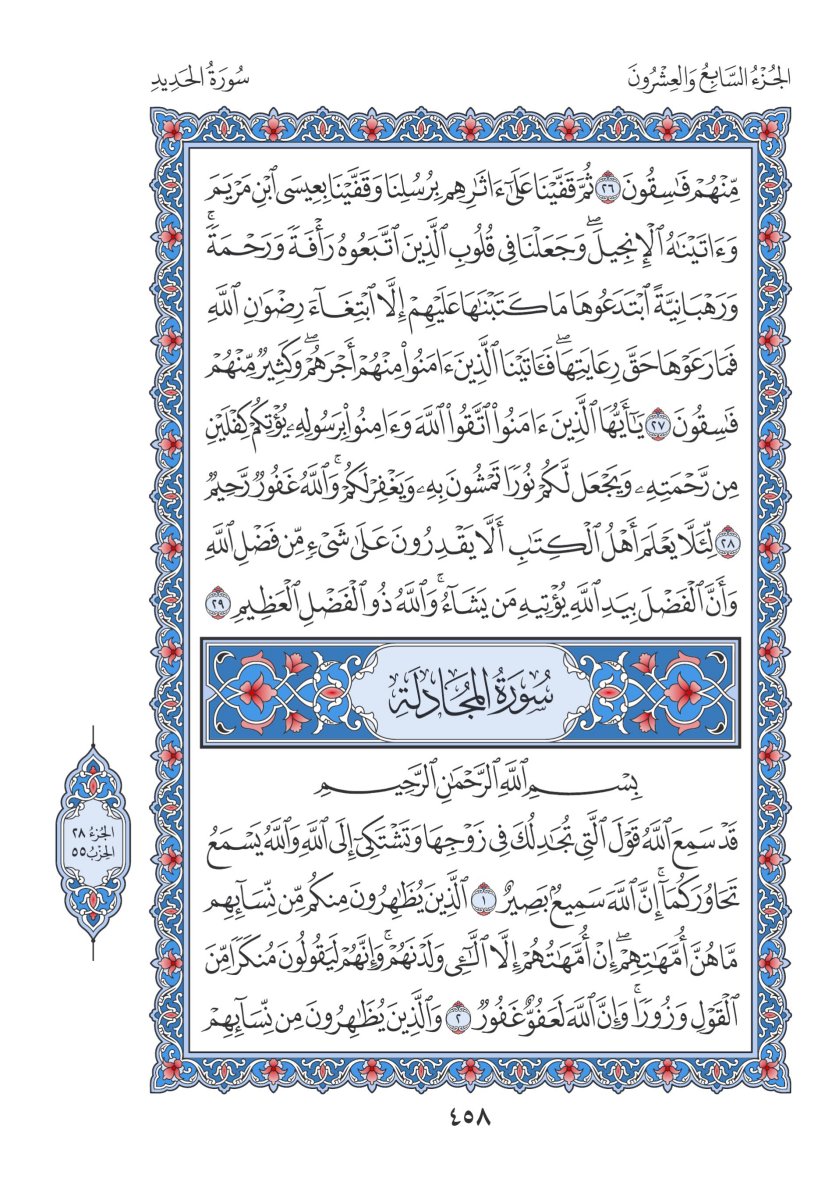 الجُزْءُ السَّابِعُ وَالعِشْرُونَ
سُورَةُ الحَدِيدِ
مِّنۡهُمۡ فَٰسِقُونَ ٢٦ ثُمَّ قَفَّيۡنَا عَلَىٰٓ ءَاثَٰرِهِم بِرُسُلِنَا وَقَفَّيۡنَا بِعِيسَى ٱبۡنِ مَرۡيَمَ
وَءَاتَيۡنَٰهُ ٱلۡإِنجِيلَۖ وَجَعَلۡنَا فِي قُلُوبِ ٱلَّذِينَ ٱتَّبَعُوهُ رَأۡفَةٗ وَرَحۡمَةٗۚ
وَرَهۡبَانِيَّةً ٱبۡتَدَعُوهَا مَا كَتَبۡنَٰهَا عَلَيۡهِمۡ إِلَّا ٱبۡتِغَآءَ رِضۡوَٰنِ ٱللَّهِ
فَمَا رَعَوۡهَا حَقَّ رِعَايَتِهَاۖ فَـَٔاتَيۡنَا ٱلَّذِينَ ءَامَنُواْ مِنۡهُمۡ أَجۡرَهُمۡۖ وَكَثِيرٞ مِّنۡهُمۡ
فَٰسِقُونَ ٢٧ يَٰٓأَيُّهَا ٱلَّذِينَ ءَامَنُواْ ٱتَّقُواْ ٱللَّهَ وَءَامِنُواْ بِرَسُولِهِۦ يُؤۡتِكُمۡ كِفۡلَيۡنِ
مِن رَّحۡمَتِهِۦ وَيَجۡعَل لَّكُمۡ نُورٗا تَمۡشُونَ بِهِۦ وَيَغۡفِرۡ لَكُمۡۚ وَٱللَّهُ غَفُورٞ رَّحِيمٞ
٢٨ لِّئَلَّا يَعۡلَمَ أَهۡلُ ٱلۡكِتَٰبِ أَلَّا يَقۡدِرُونَ عَلَىٰ شَيۡءٖ مِّن فَضۡلِ ٱللَّهِ
وَأَنَّ ٱلۡفَضۡلَ بِيَدِ ٱللَّهِ يُؤۡتِيهِ مَن يَشَآءُۚ وَٱللَّهُ ذُو ٱلۡفَضۡلِ ٱلۡعَظِيمِ ٢٩
سُورَةُ المُجَادلَةِ
بِسۡمِ ٱللَّهِ ٱلرَّحۡمَٰنِ ٱلرَّحِيمِ
قَدۡ سَمِعَ ٱللَّهُ قَوۡلَ ٱلَّتِي تُجَٰدِلُكَ فِي زَوۡجِهَا وَتَشۡتَكِيٓ إِلَى ٱللَّهِ وَٱللَّهُ يَسۡمَعُ
تَحَاوُرَكُمَآۚ إِنَّ ٱللَّهَ سَمِيعُۢ بَصِيرٌ ١ ٱلَّذِينَ يُظَٰهِرُونَ مِنكُم مِّن نِّسَآئِهِم
مَّا هُنَّ أُمَّهَٰتِهِمۡۖ إِنۡ أُمَّهَٰتُهُمۡ إِلَّا ٱلَّٰٓـِٔي وَلَدۡنَهُمۡۚ وَإِنَّهُمۡ لَيَقُولُونَ مُنكَرٗا مِّنَ
ٱلۡقَوۡلِ وَزُورٗاۚ وَإِنَّ ٱللَّهَ لَعَفُوٌّ غَفُورٞ ٢ وَٱلَّذِينَ يُظَٰهِرُونَ مِن نِّسَآئِهِمۡ
الجُزءُ ٢٨
الحِزبُ ٥٥
٤٥٨